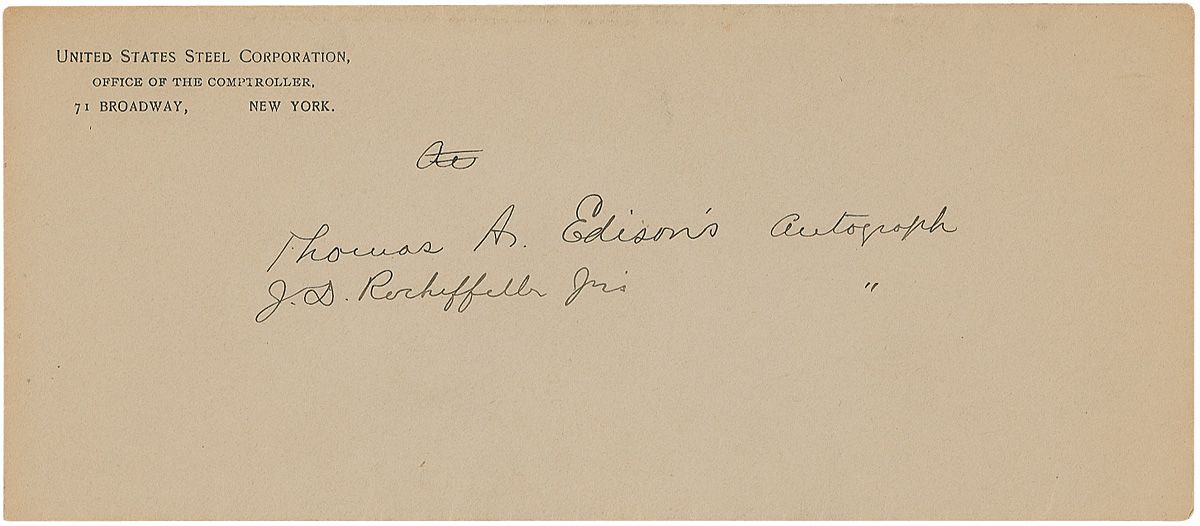 UNITED STATES STEEL CORPORATION,
OFFICE OF THE COMPTROLLER,
71 BROADWAY, NEW YORK.
Thomas A. Edison's Autograph
J. D. Rockeffeller Jr's "